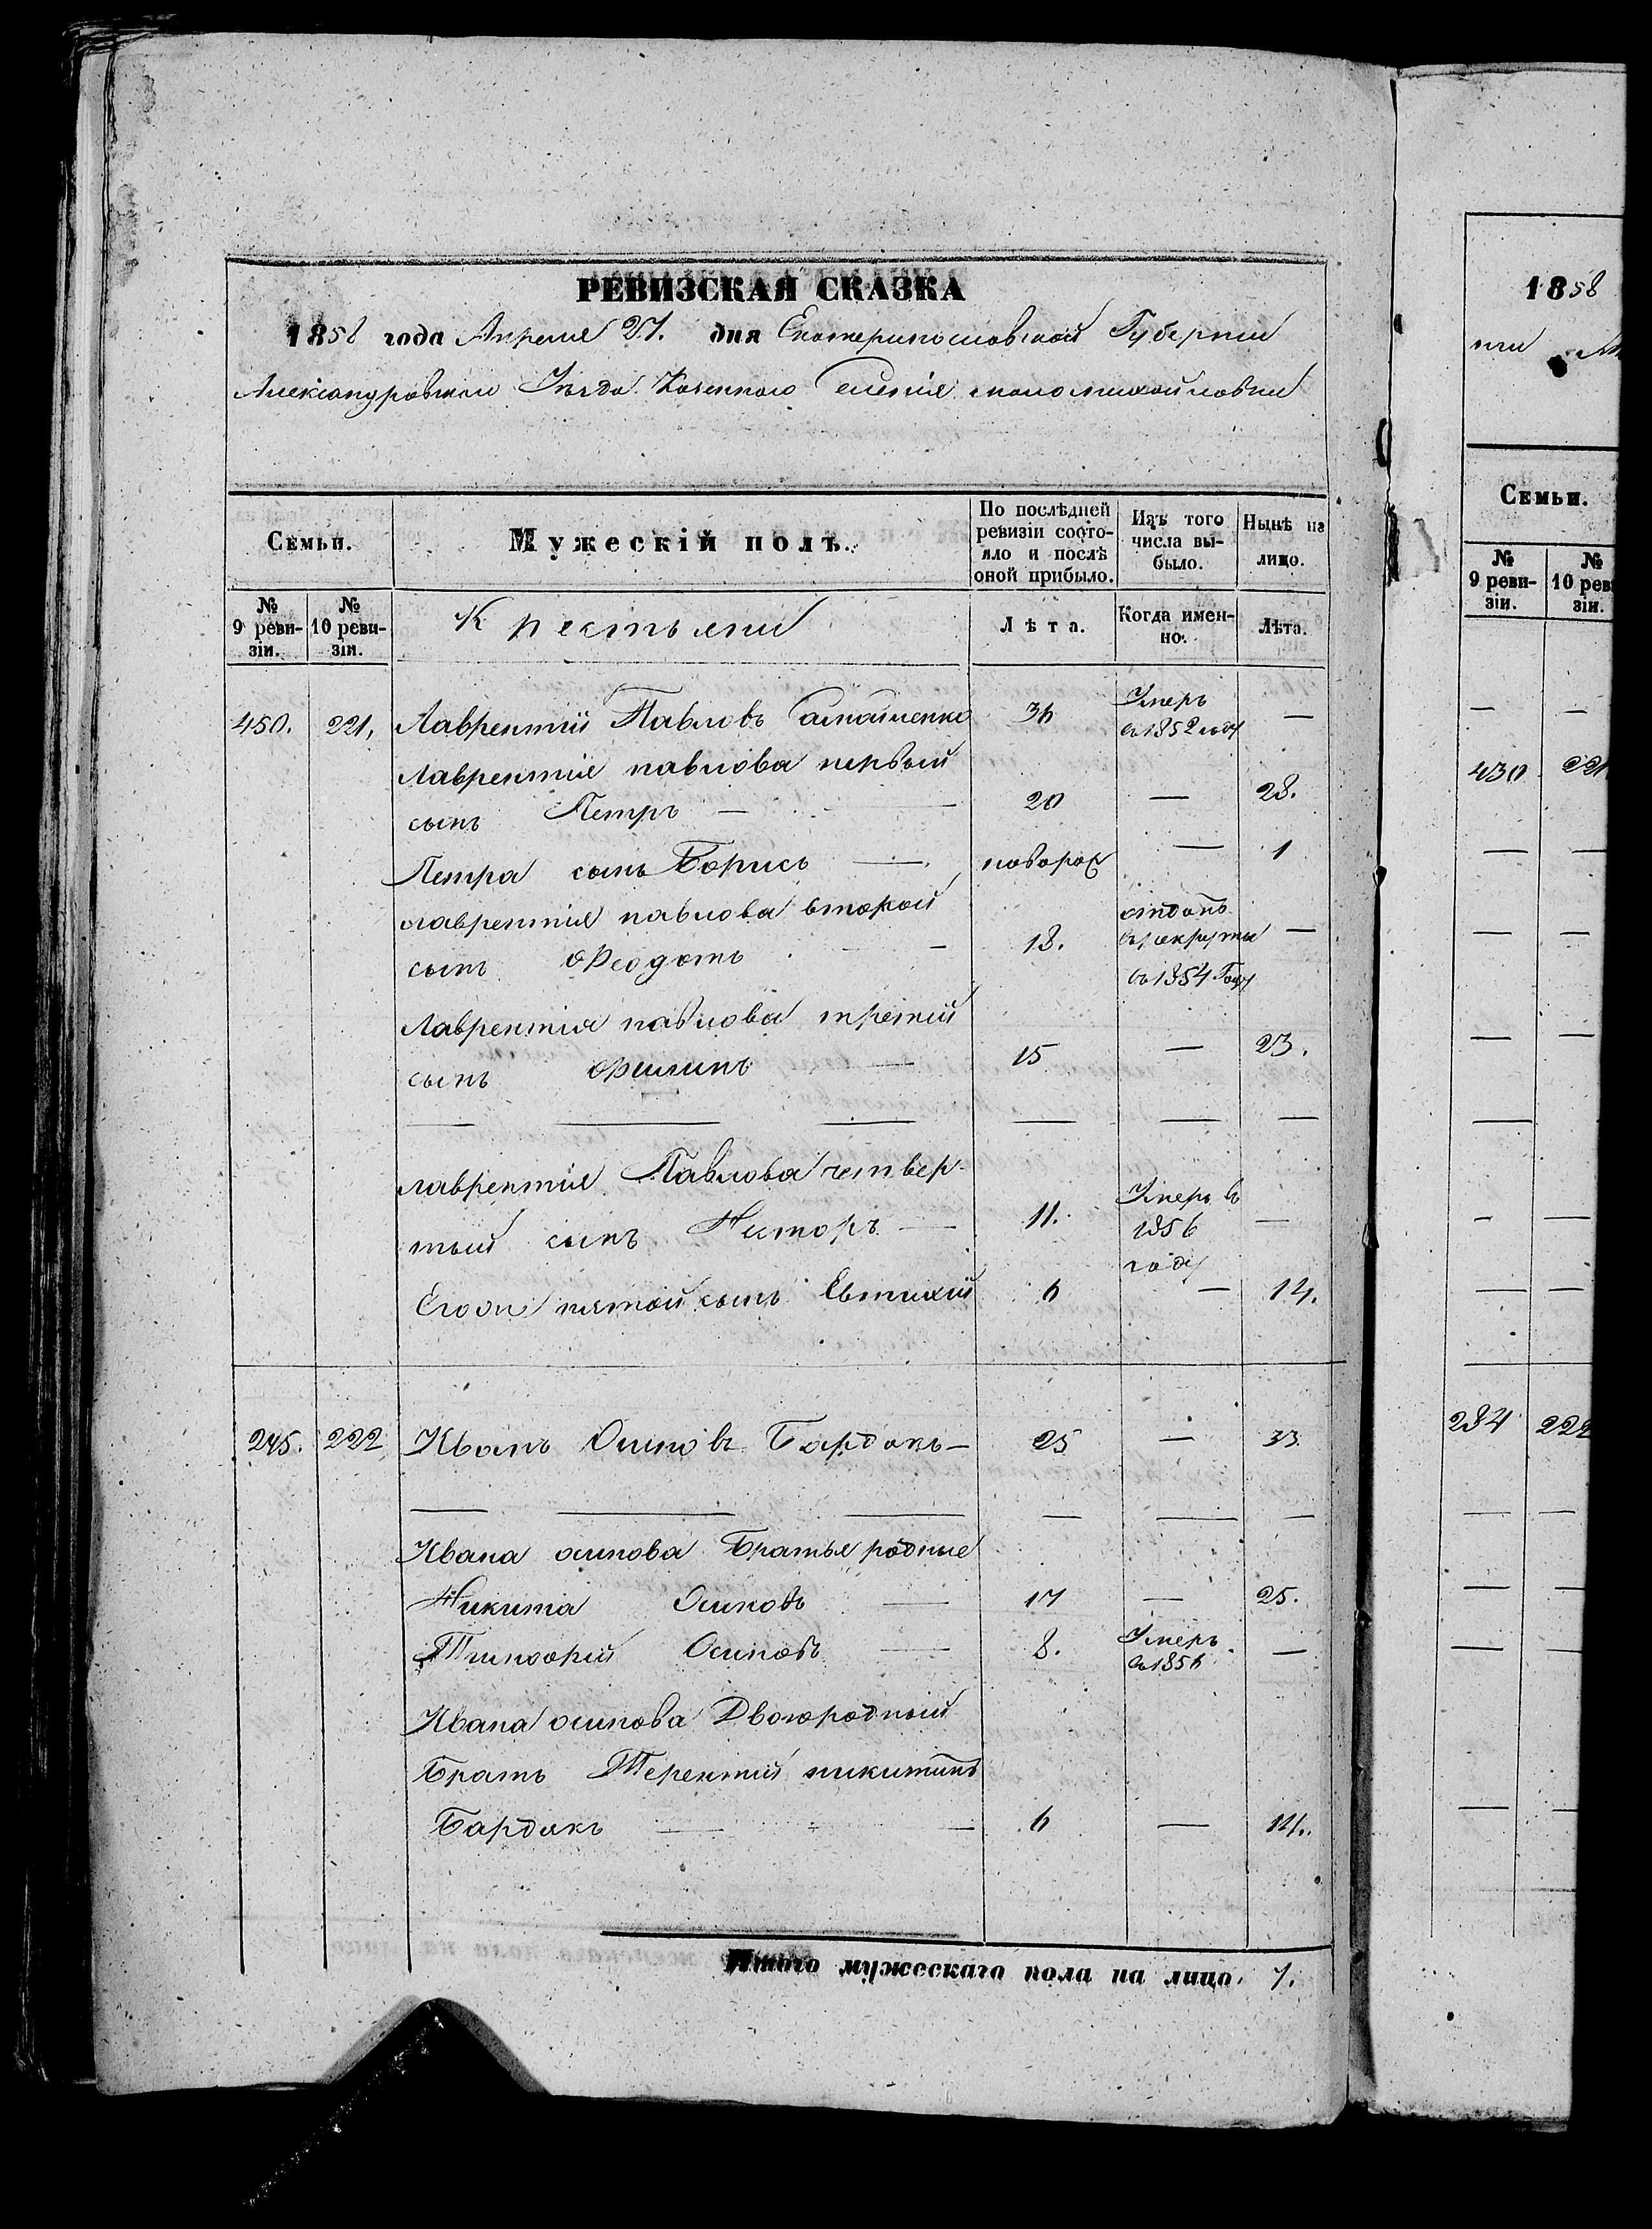 РЕВИЗСКАЯ СКАЗКА
1858 года Апреля 27. дня Екатеринославской Губернии
Александровском Уѣзда Казенного Селенія маломихайловки
Семьи.
Мужескій полъ.
По послѣдней ревизіи состояло и послѣ оной прибыло.
Изъ того числа выбыло.
Нынѣ на лицо.
№ 9 ревизіи.
№ 10 ревизіи.
Крестьяни
Лѣта.
Когда именно.
Лѣта.
450. 221, Лаврентій Павловъ 36 Умеръ въ 1852 году —
Лаврентія павлова первый
сынъ Петръ — 20 — 28.
Петра сынъ Борисъ — новорож — 1
лаврентія павлова второй
сынъ Феодотъ — 18. отданъ в рекруты въ 1854 Году —
Лаврентія павлова третій
сынъ Филипъ — 15 — 23.
лаврентія Павлова четвер
тый сынъ Несторъ — 11. Умеръ в 1856 году —
Егоже пятой сынъ Евтихій 6 — 14.
245. 222 Иванъ Осиповъ Бардакъ — 25 — 33.
Ивана осипова Братья родные
Никита Осиповъ — 17 — 25.
Тимофей Осиповъ — 8. Умеръ въ 1856 —
Ивана осипова Двоюродный
Братъ Терентий никитинъ
Бардакъ — 6 — 14.
Итого мужескаго пола на лицо. 7.
1858
Семьи.
№ 9 реви-зіи.
№ 10 рев зіи.
430 221
284 222